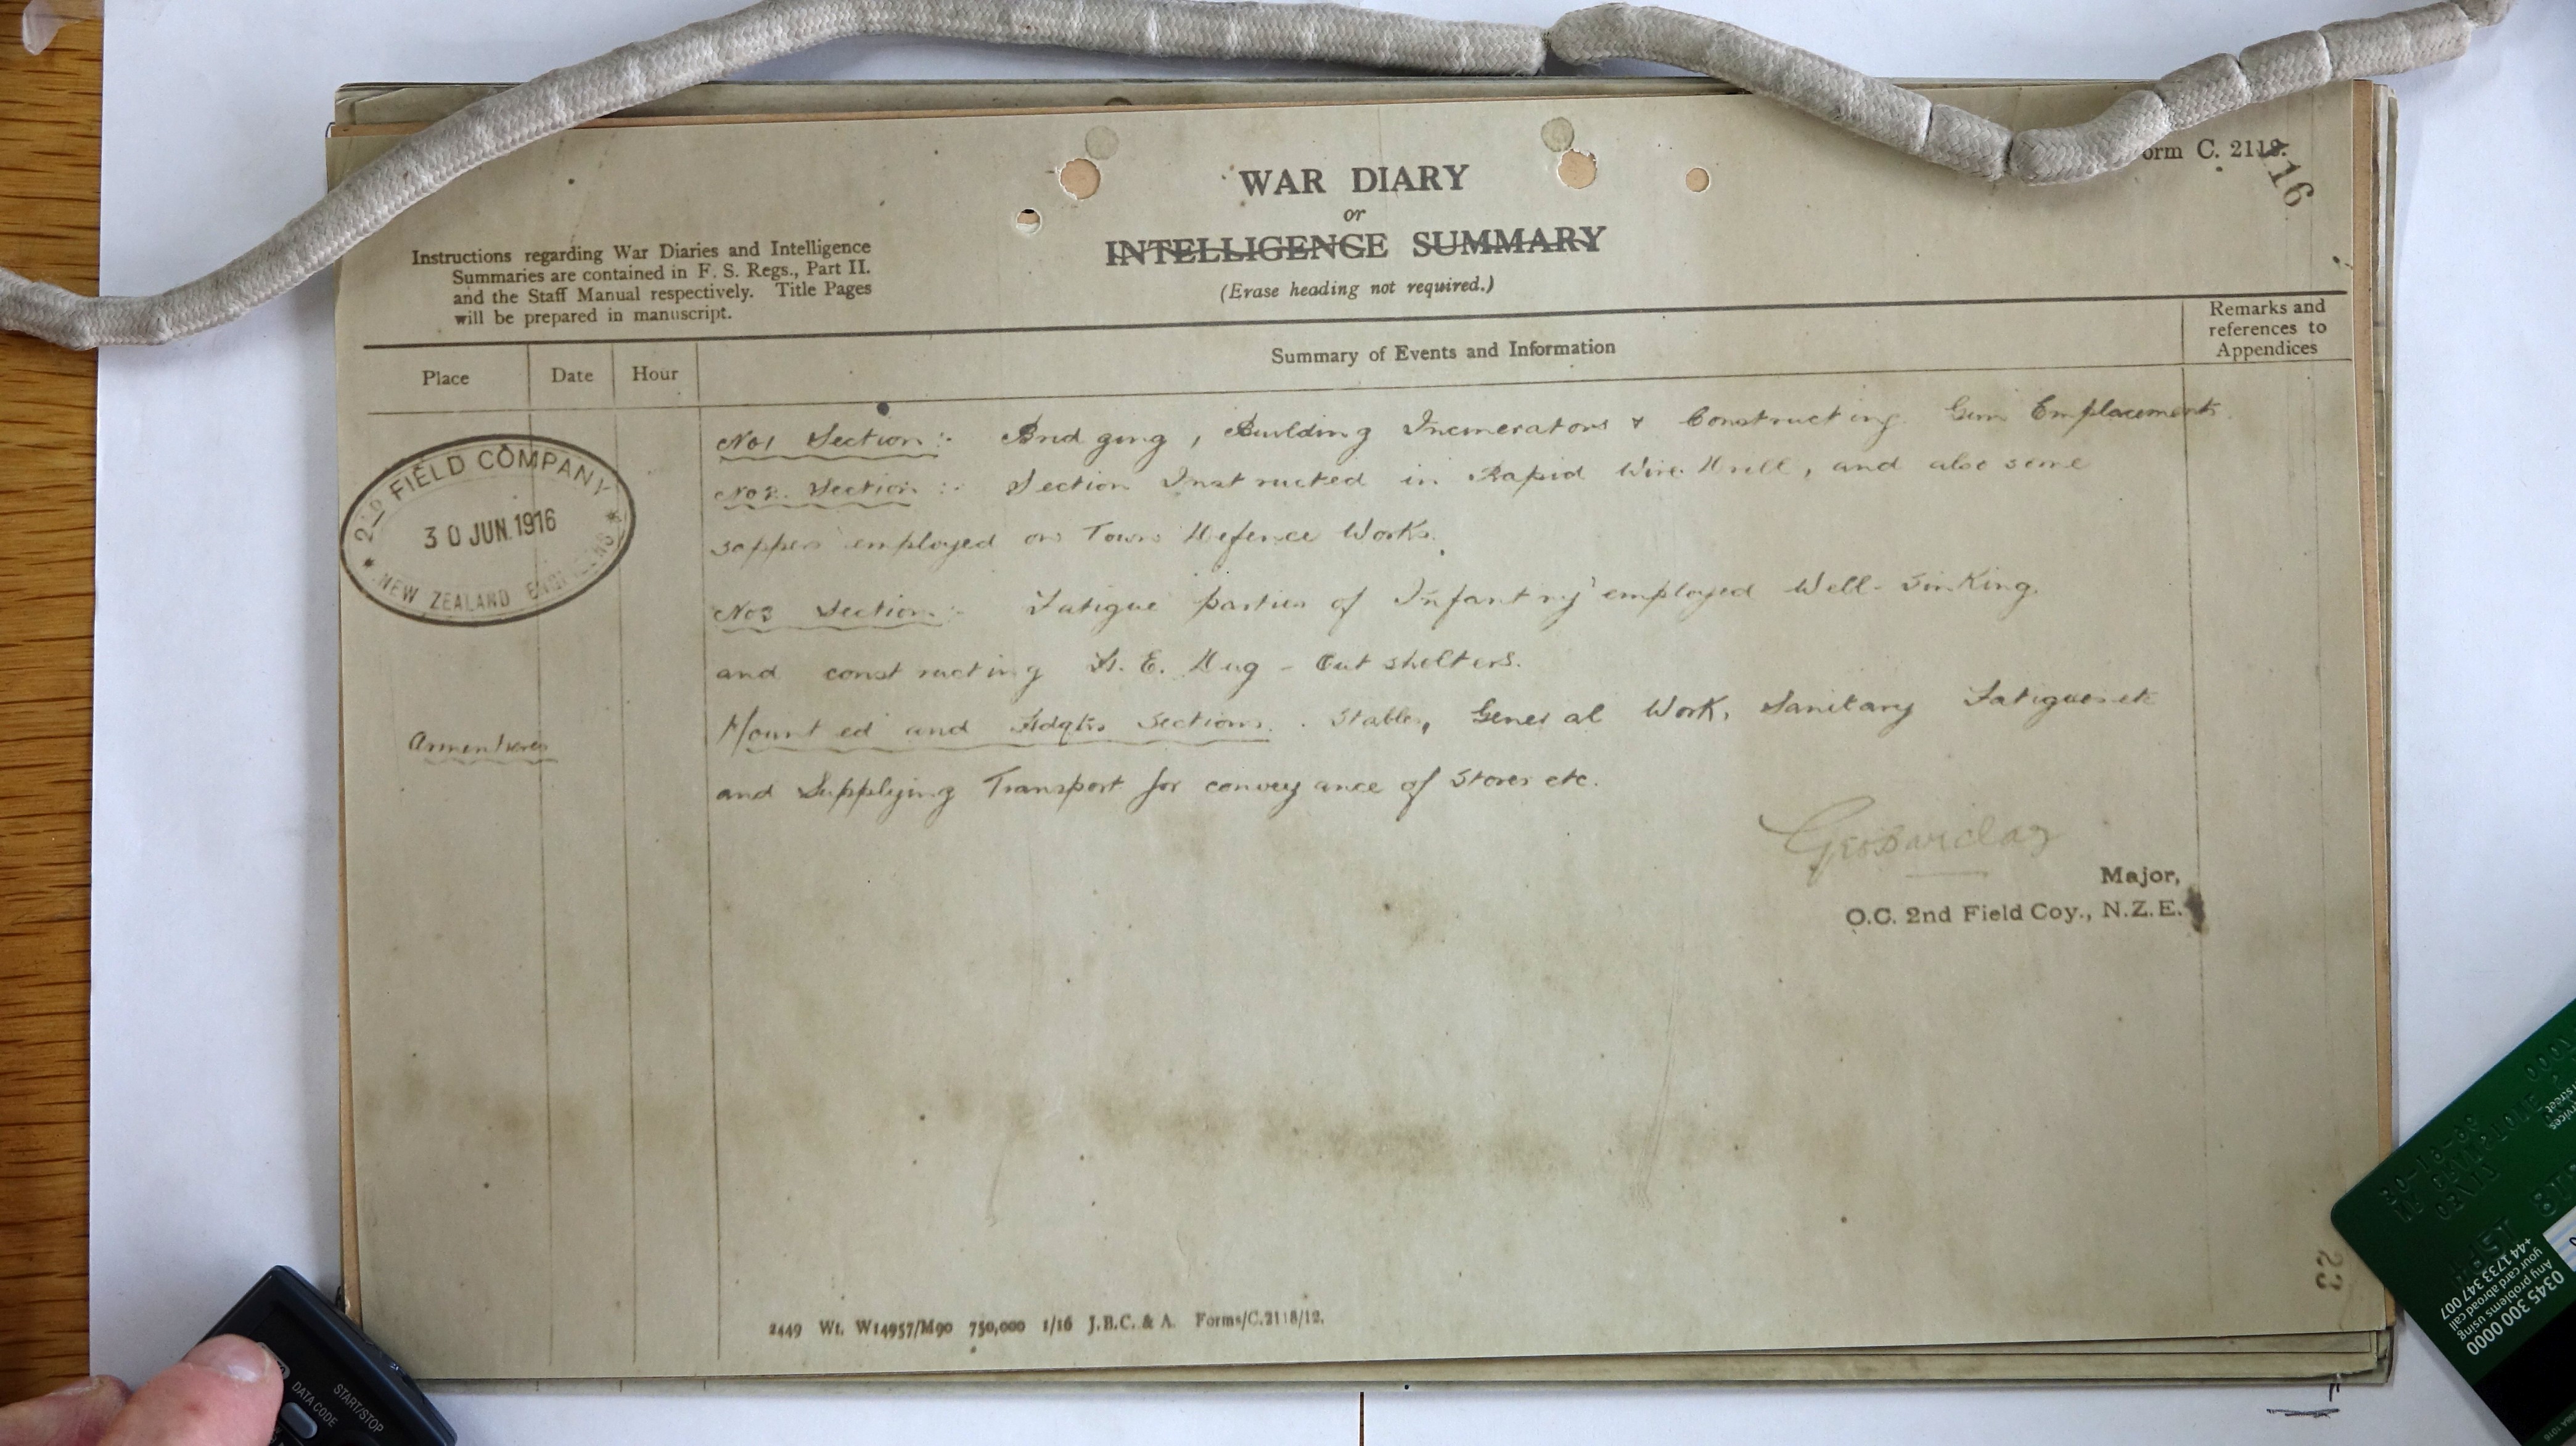 Form C. 2118.
116
WAR DIARY
or
INTELLIGENCE SUMMARY
(Erase heading not required.)
Instructions regarding War Diaries and Intelligence
Summaries are contained in F. S. Regs., Part II.
and the Staff Manual respectively. Title Pages
will be prepared in manuscript.
Place Date Hour
Summary of Events and Information
Remarks and
references to
Appendices
2ND FIELD COMPANY
30 JUN. 1916
NEW ZEALAND ENGINEERS
Armentieres
No1 Section:- Bridging, Building Incinerators & Constructing Gun Emplacements
No2. Section:- Section Instructed in Rapid Wire Drill, and also some
sappers employed on Town Defence Works.
No3 Section:- Fatigue parties of Infantry employed Well-Sinking.
and constructing H.E. Dug-Out shelters.
Mounted and Hdqtrs Sections. Stables, General Work, Sanitary Fatigues etc
and Supplying Transport for conveyance of Stores etc.
Geo Barclay
Major,
O.C. 2nd Field Coy., N.Z.E.
2449 Wt. W14957/M90 750,000 1/16 J.B.C. & A. Forms/C.2118/12.
23
START/STOP
DATA CODE
0345 300 000
Any problems using
your card abroad call
+44 1733 347 007